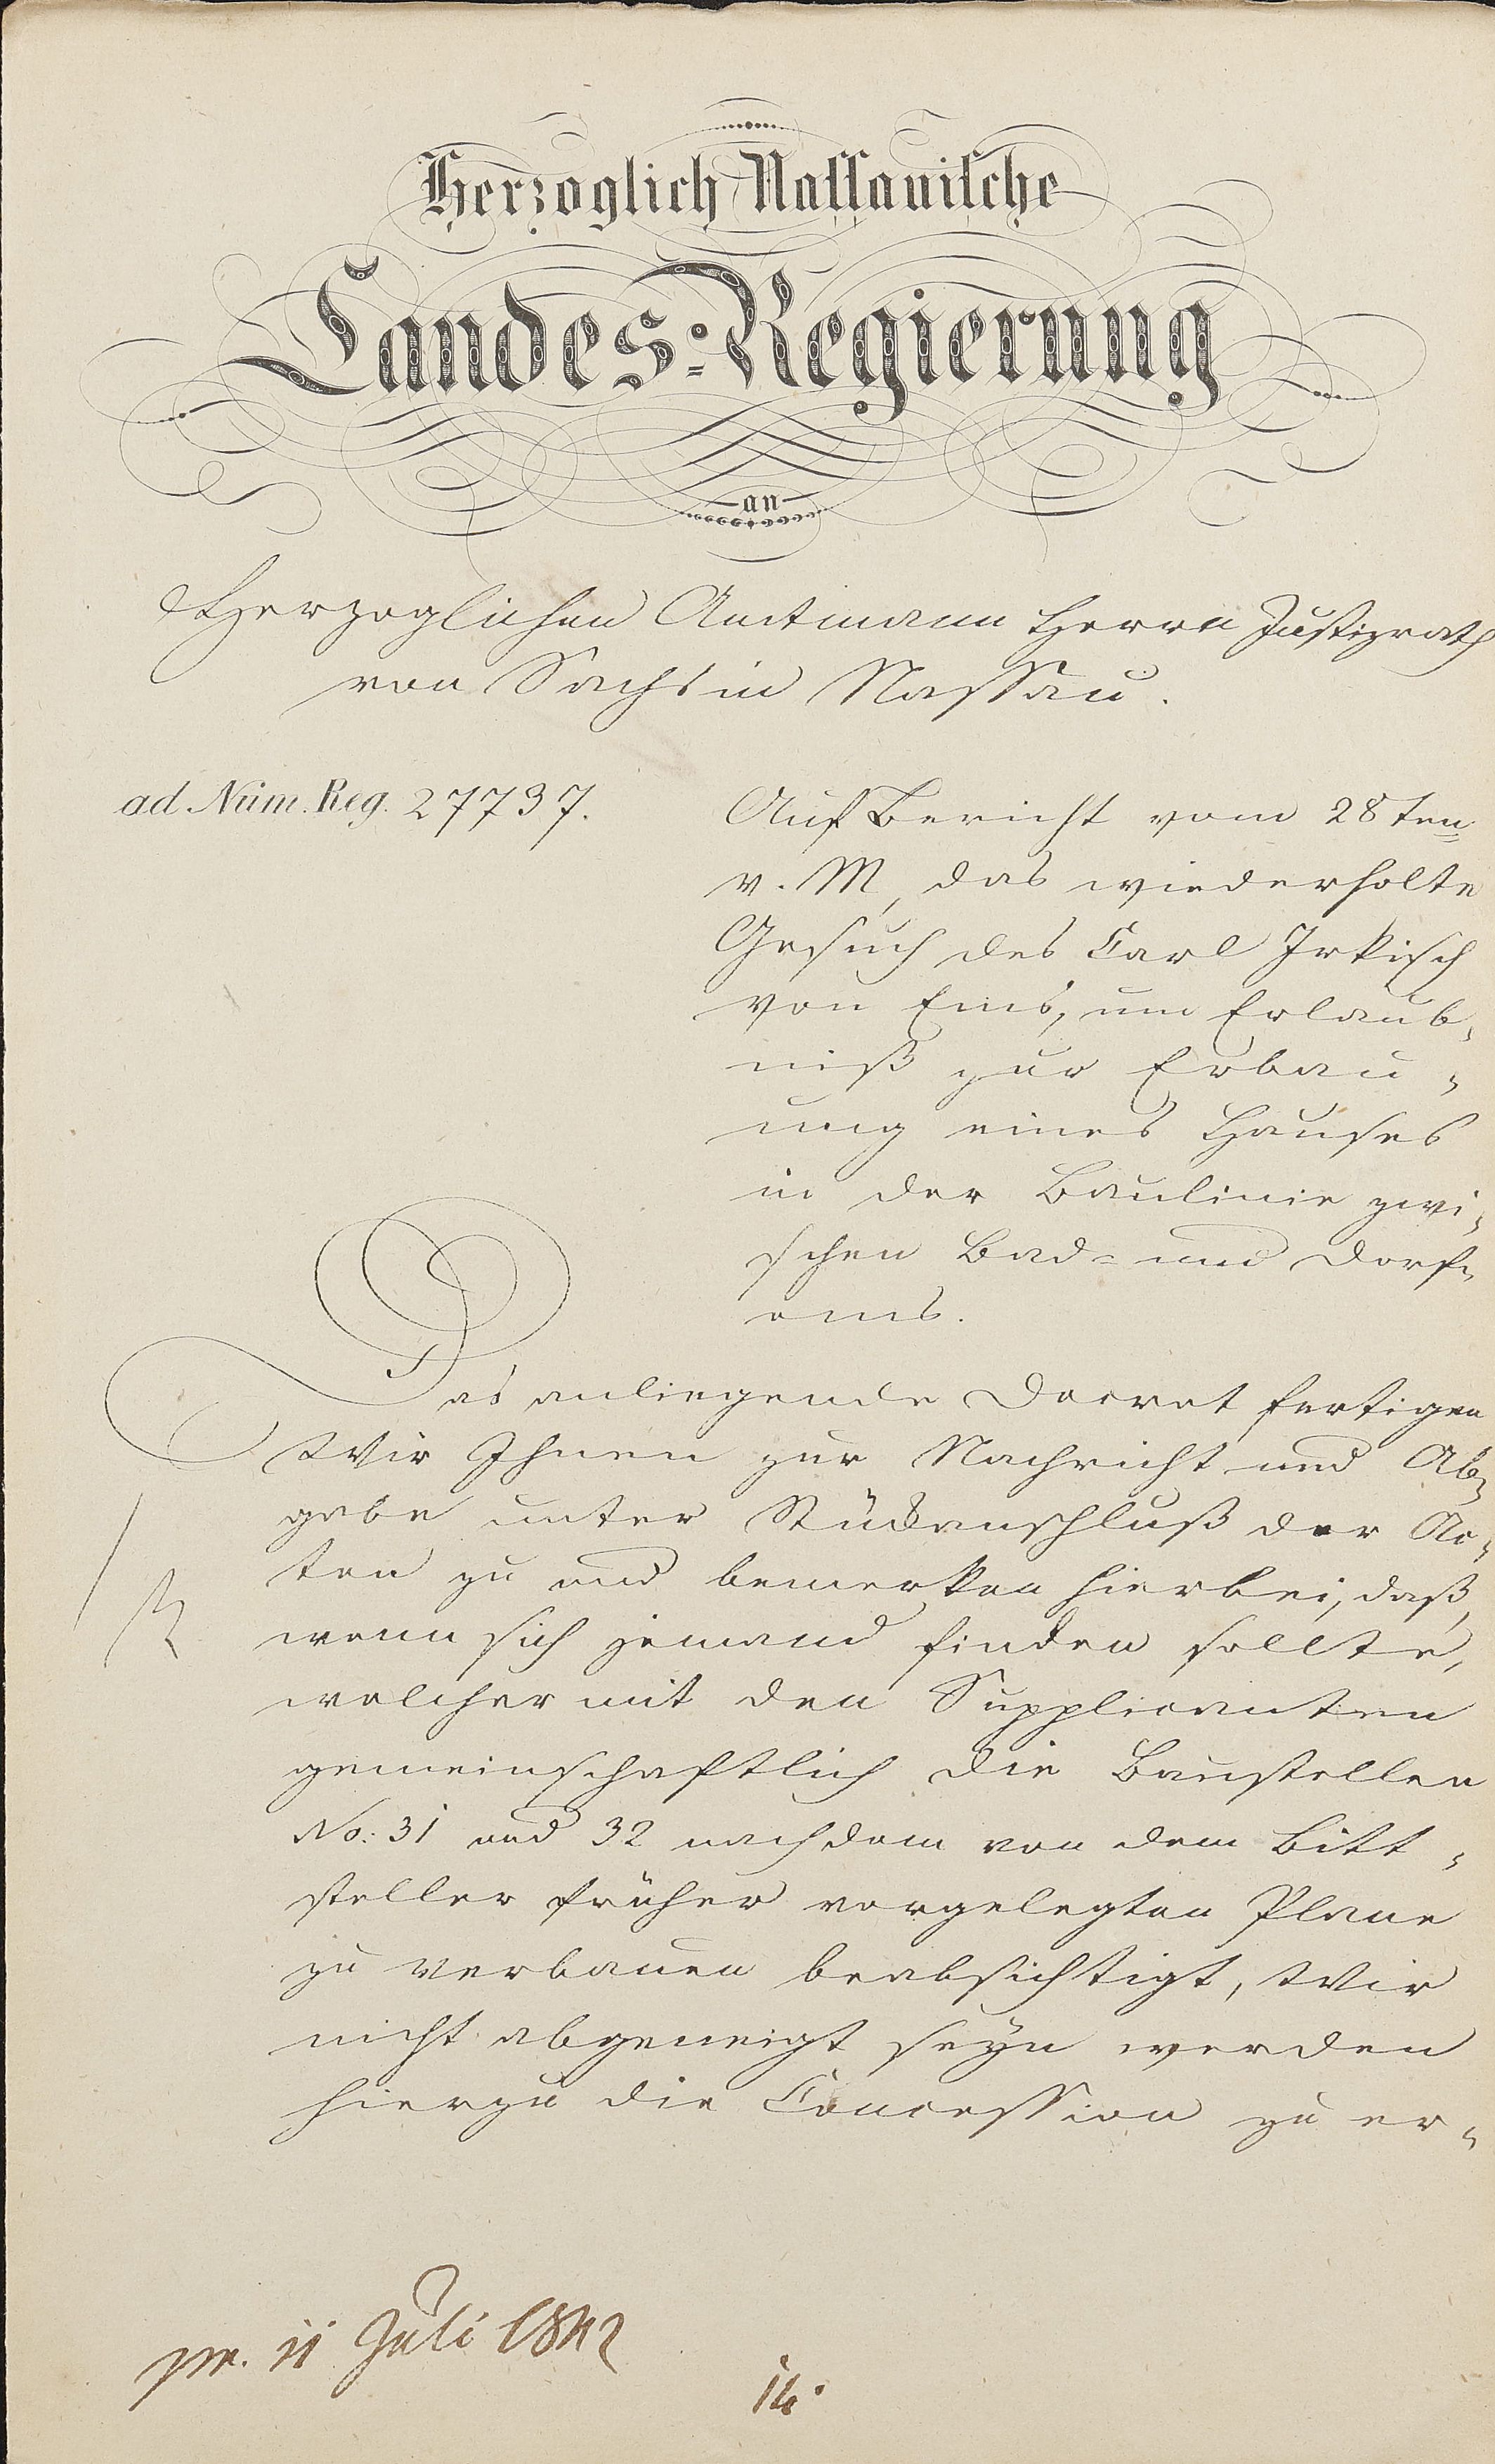 Herzoglich Nassauische
Landes-Regierung
an
Herzoglichen Amtmann Herrn Justizrath
von Sachs in Nassau.
ad Núm. Reg. 27737.
Auf Bericht vom 28ten
v. M, das wiederholte
Gesuch des Carl Irkisch
von Ems, um Erlaub-
niß zur Erbau-
ung eines Hauses
in der Baulinie zwi-
schen Bad- und Dorf-
ems.
Das anliegende Decret fertigen
Wir Ihnen zur Nachricht und Ab-
gabe unter Rückanschluß der Ac-
ten zu und bemerken hierbei, daß,
wenn sich jemand finden sollte,
welcher mit den Supplicanten
gemeinschaftlich die Baustellen
No: 31 und 32 nach dem von dem Bitt-
steller früher vorgelegten Plane
zu verbauen beabsichtigt, Wir
nicht abgeneigt seyn werden
hierzu die Concession zu er-
pr. 11 Juli 1842
14.